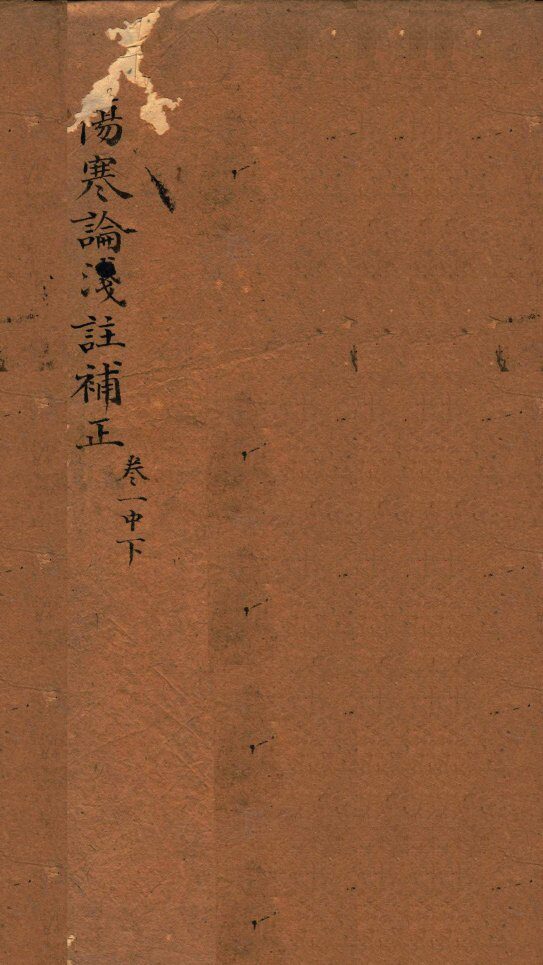 傷寒論淺註補正
卷一中下